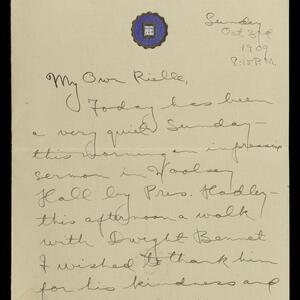 Sunday
Oct 3rd
1909
8:15 P.M
My Own Rielle,
Today has been
a very quiet Sunday-
this morning an impressive
sermon in Woolsey
Hall by Pres. Hadley-
this afternoon a walk
with Dwight Bennet
I wished to thank him
for his kindness and